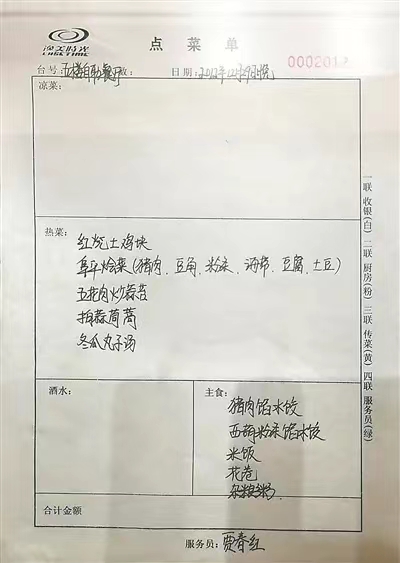 逸美时光
LIKE TIME
点菜单
台号:五楼自助餐厅 数: 日期:2012年12月29日晚
000201
凉菜:
热菜:
红烧土鸡块
阜平烩菜(猪肉、豆角、粉条、海带、豆腐、土豆)
五花肉炒蒜苔
拍蒜茼蒿
冬瓜丸子汤
酒水:
主食:
猪肉馅水饺
西葫粉条馅水饺
米饭
花卷
杂粮粥
合计金额
服务员:贾春红
一联 收银(白) 二联 厨房(粉) 三联 传菜(黄) 四联 服务员(绿)